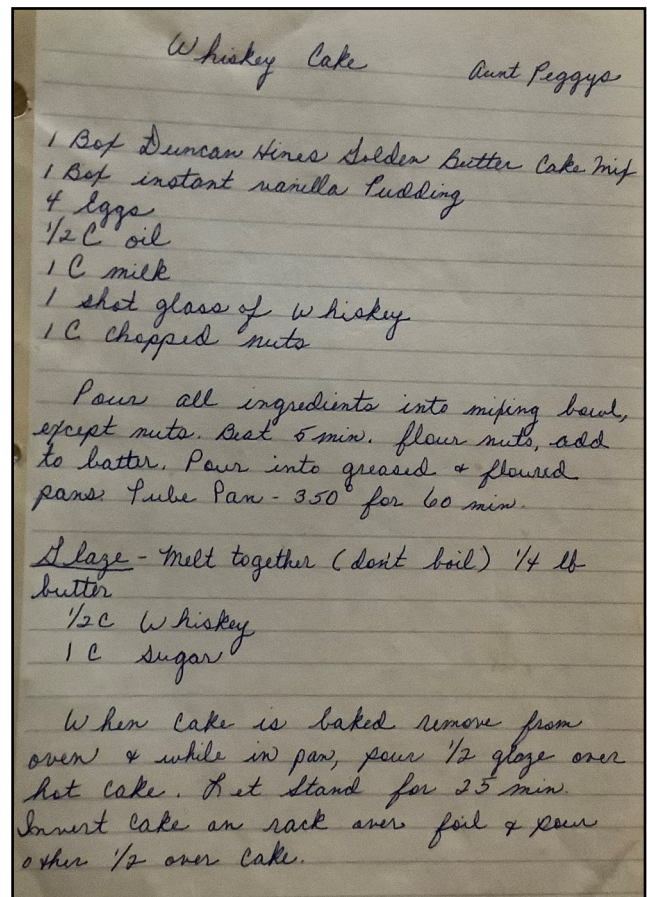 Whiskey Cake Aunt Peggys
1 Box Duncan Hines Golden Butter Cake Mix
1 Box instant vanilla Pudding
4 Eggs
1/2 C oil
1 C milk
1 shot glass of Whiskey
1 C chopped nuts
Pour all ingredients into mixing bowl,
except nuts. Beat 5 min. flour nuts, add
to batter. Pour into greased & floured
pans. Tube Pan - 350° for 60 min.
Glaze - Melt together (don't boil) 1/4 lb
butter
1/2 C Whiskey
1 C sugar
When cake is baked remove from
oven & while in pan, pour 1/2 glaze over
hot cake. Let stand for 25 min.
Invert cake on rack over foil & pour
other 1/2 over cake.